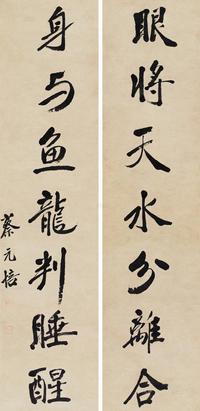 眼将天水分離合
身与鱼龍判睡醒
蔡元培